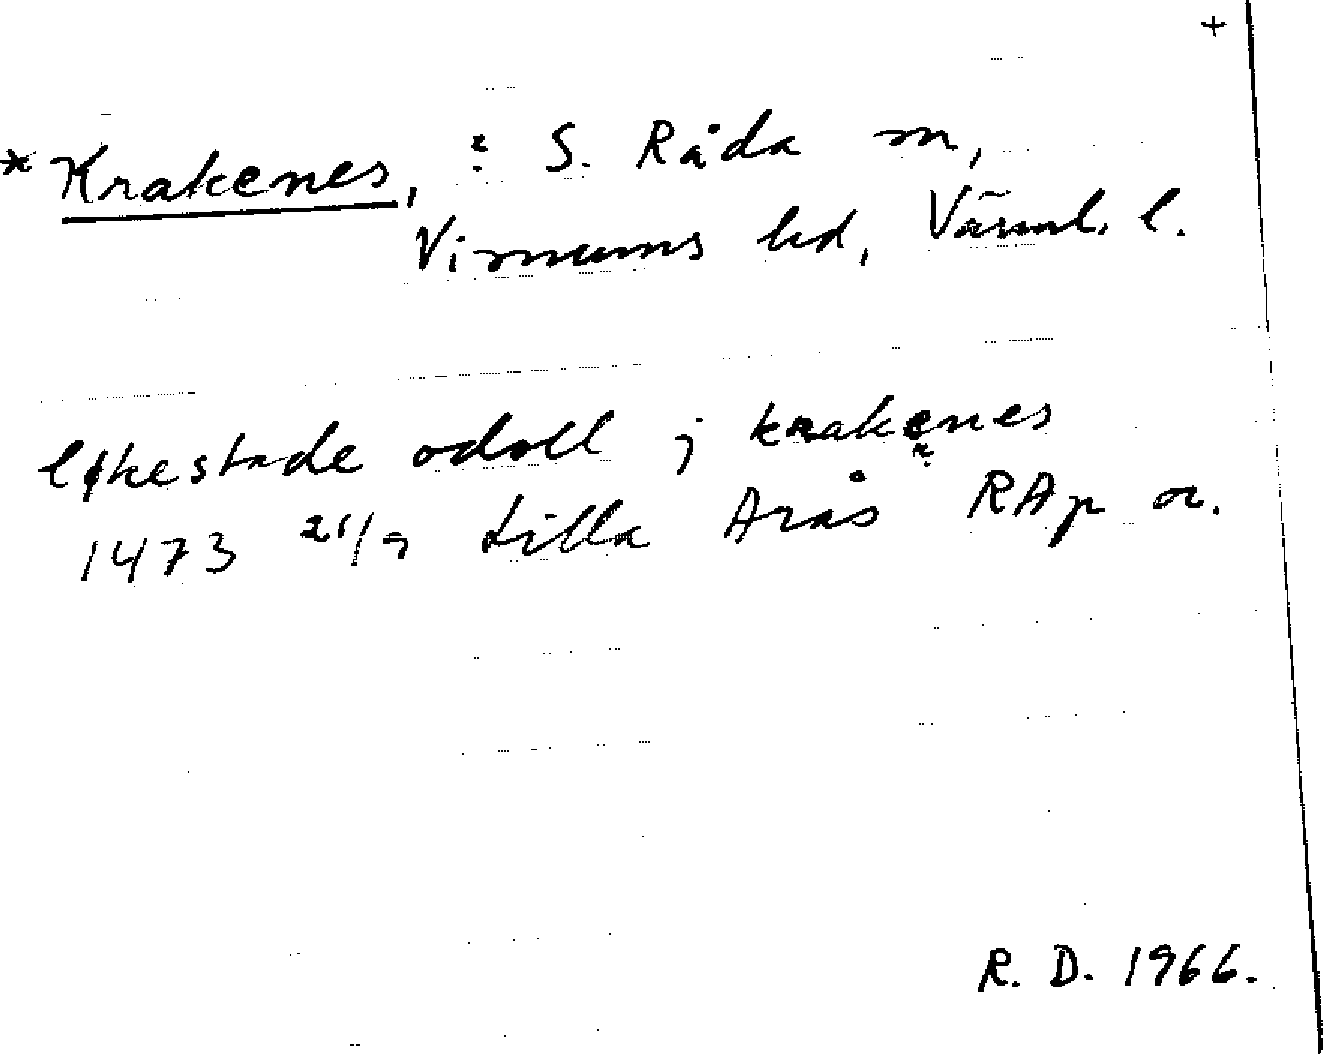 +
*Krakenes, ? S. Råda sn,
Visnums hd, Värml. l.
løkestade odoll j krakenes
1473 21/9 Lilla Arås RAp or.
R. D. 1966.